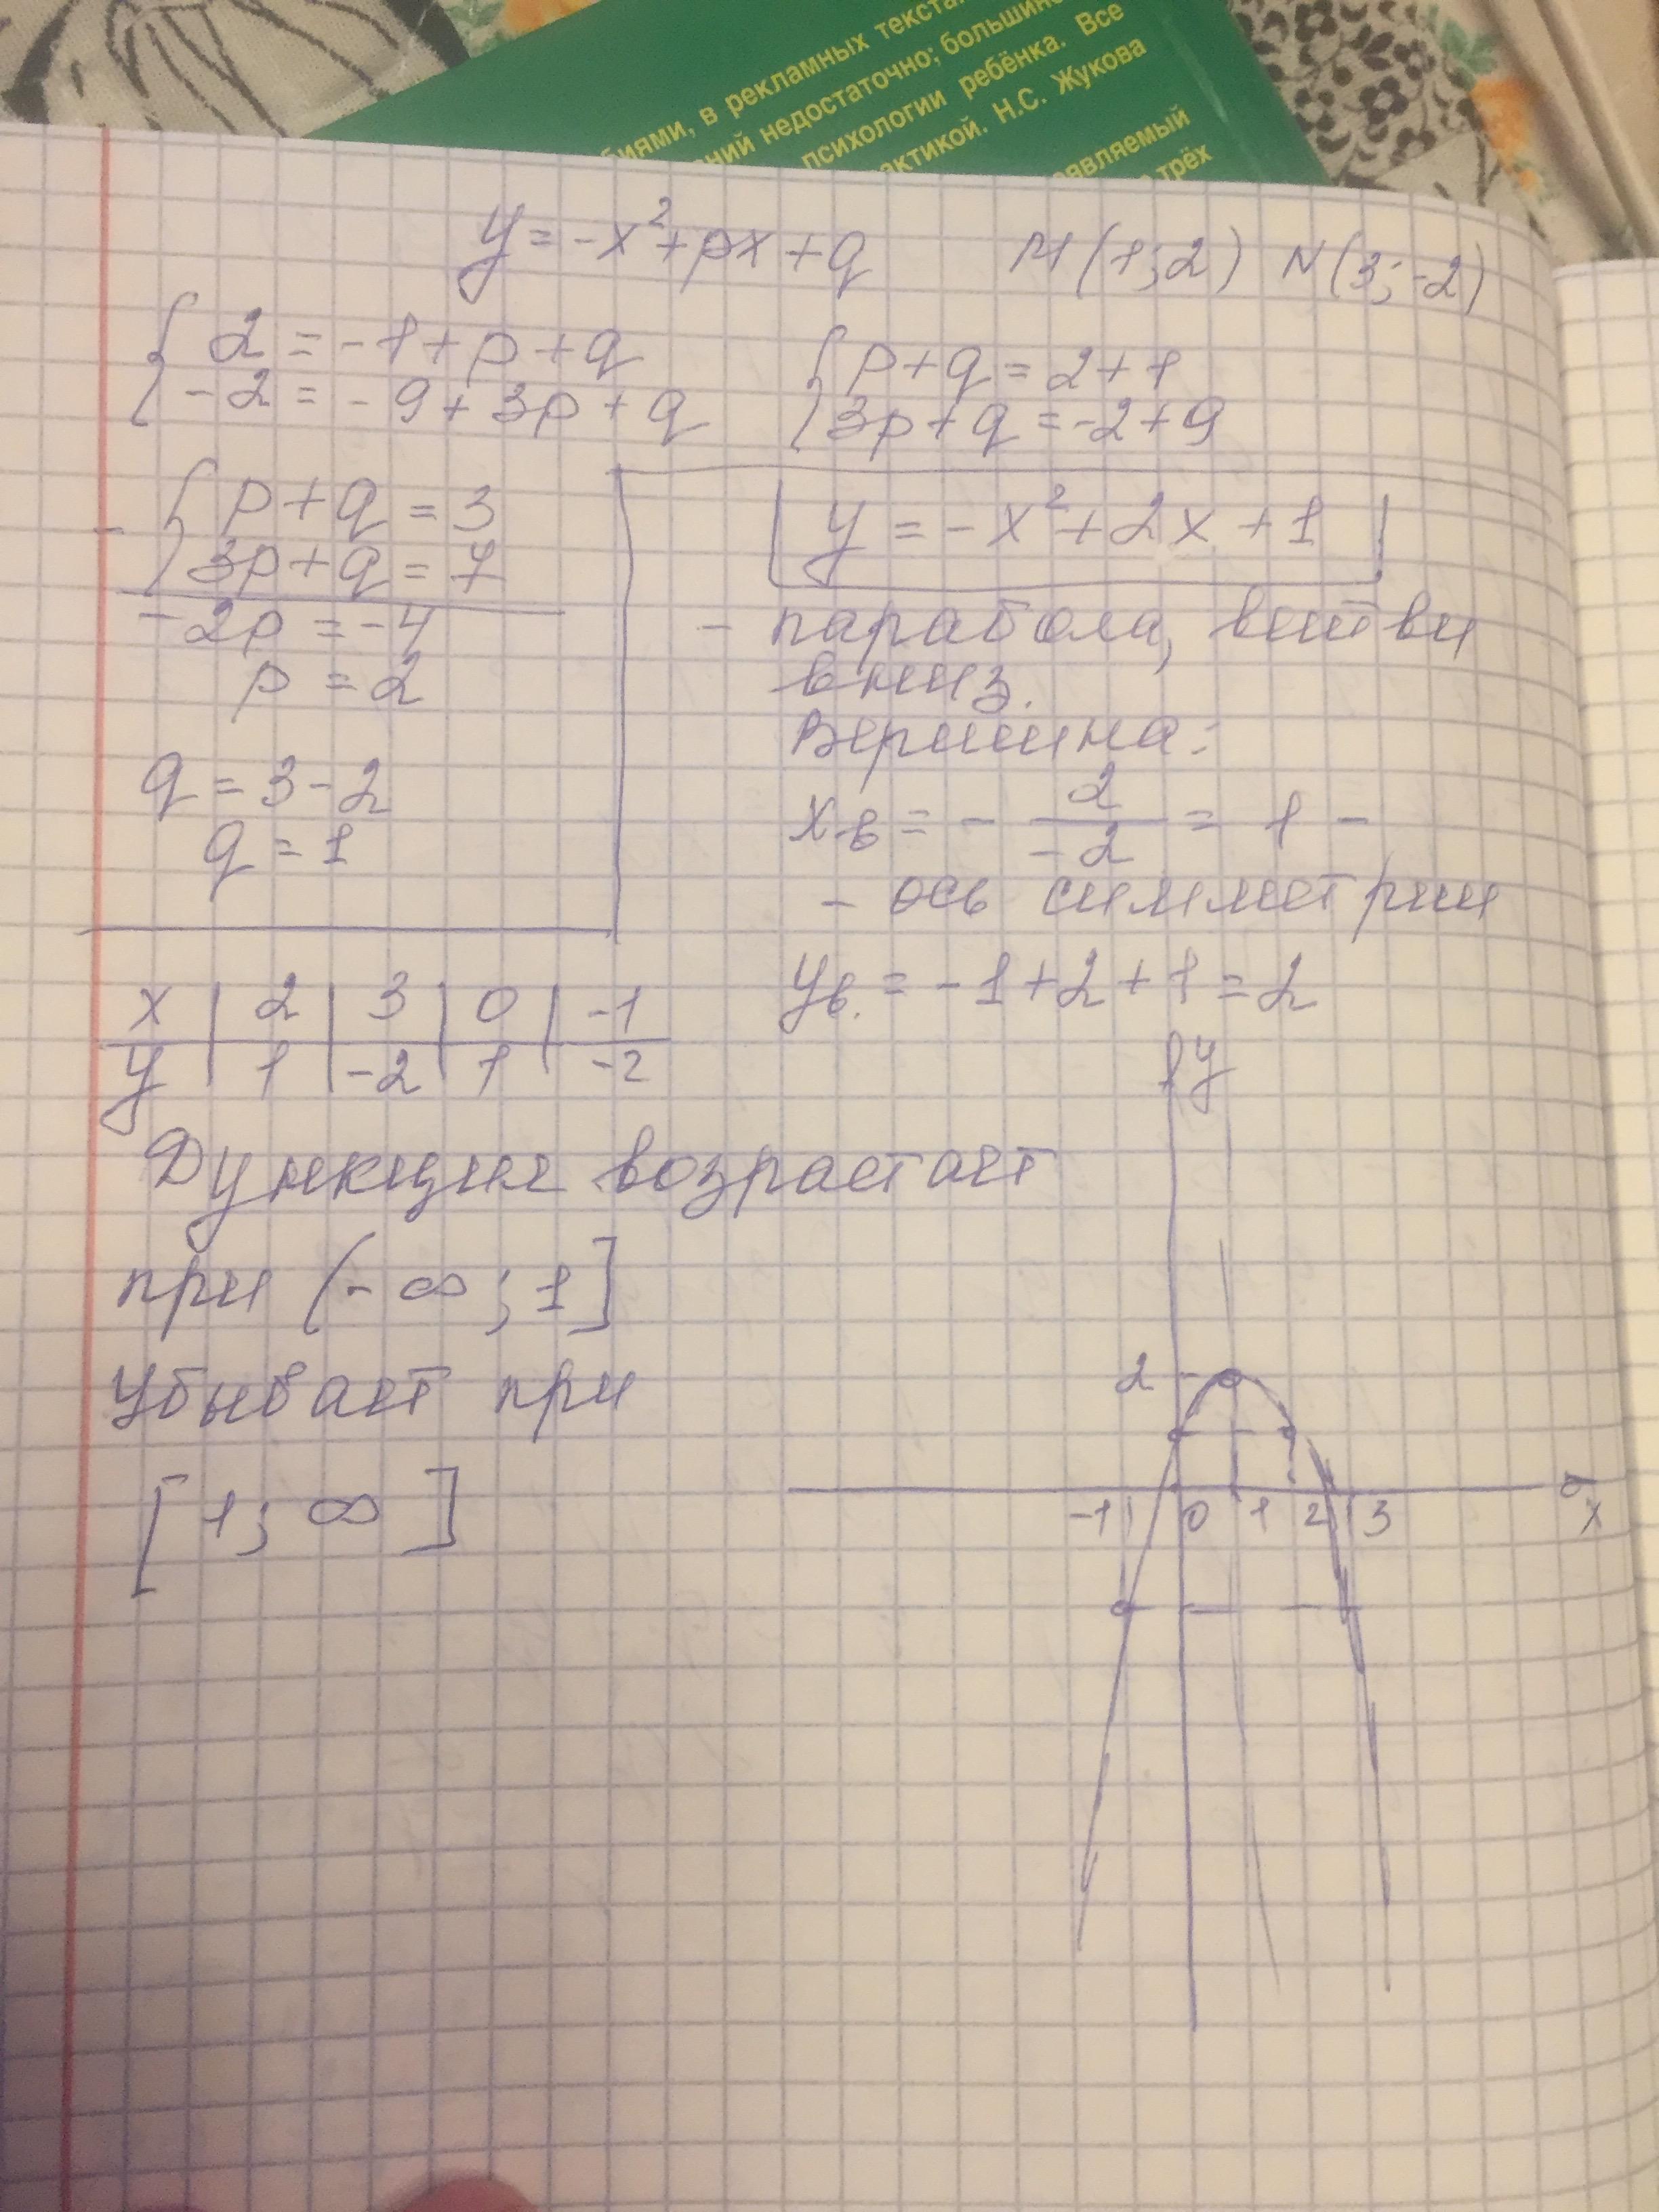 биями, в рекламных текста
ний недостаточно; большинс
психологии ребёнка. Все
актикой. Н.С. Жукова
являемый
трёх
y = -x² + px + q M(1; 2) N(3; -2)
{ 2 = -1 + p + q
-2 = -9 + 3p + q
{ p + q = 2 + 1
3p + q = -2 + 9
- { p + q = 3
3p + q = 7
-2p = -4
p = 2
q = 3 - 2
q = 1
y = -x² + 2x + 1
- парабола, ветви
вниз.
Вершина:
xв = - 2/-2 = 1 -
- ось симметрии
yв. = -1 + 2 + 1 = 2
x | 2 | 3 | 0 | -1
y | 1 | -2 | 1 | -2
Функция возрастает
при (-∞; 1]
убывает при
[1; ∞]
y
2
-1 0 1 2 3
x